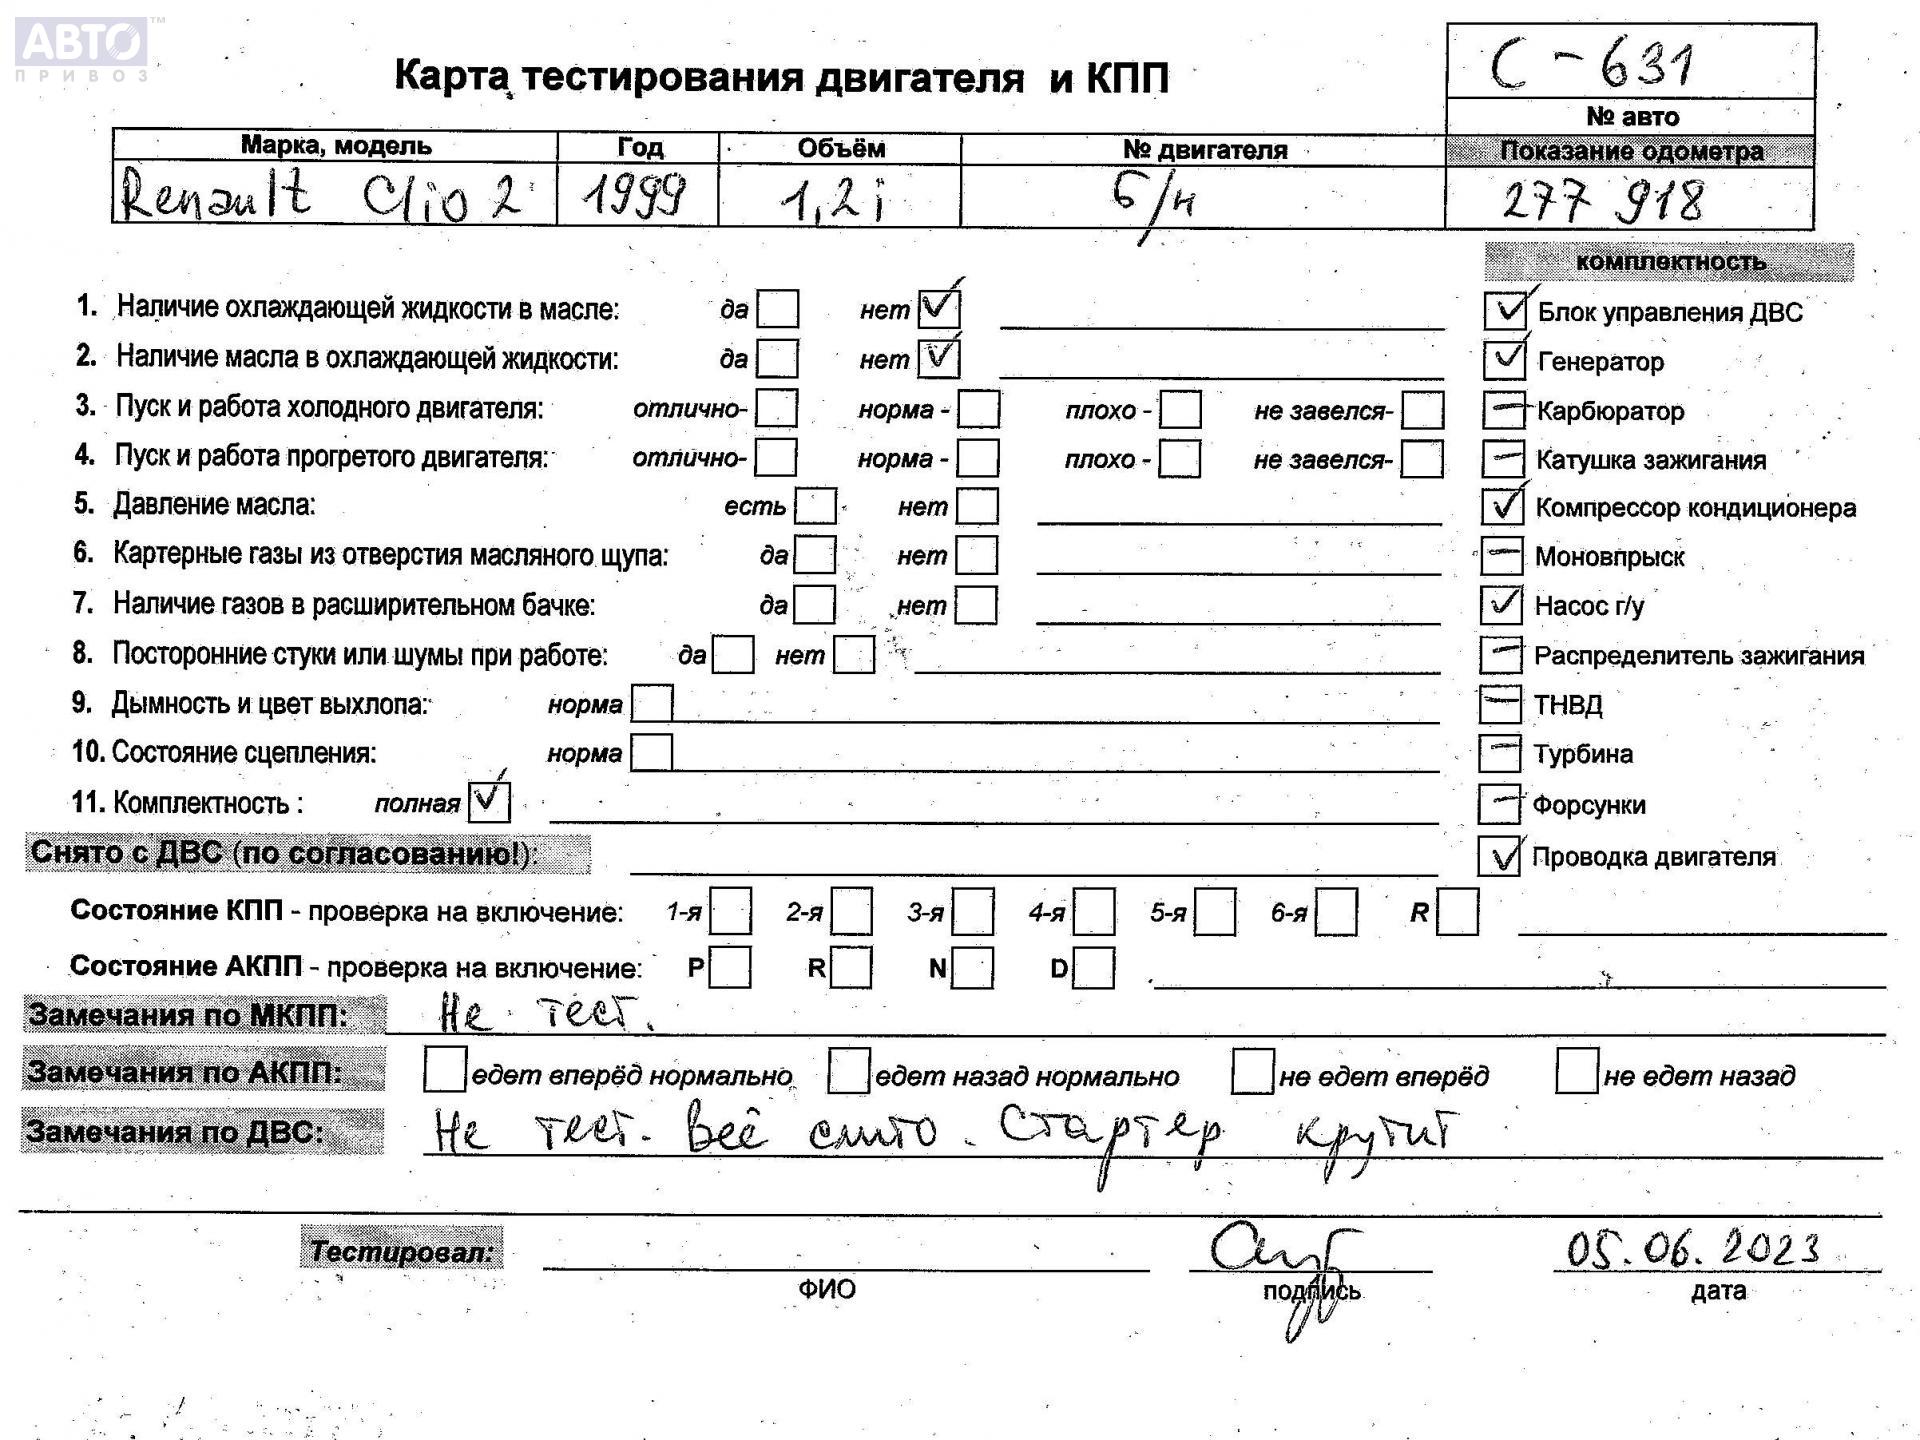 АВТО™
ПРИВОЗ
С - 631
Карта тестирования двигателя и КПП
№ авто
Марка, модель Год Объём № двигателя Показание одометра
Renault Clio 2 1999 1,2i б/н 277 918
комплектность
1. Наличие охлаждающей жидкости в масле: да нет ✓ ✓ Блок управления ДВС
2. Наличие масла в охлаждающей жидкости: да нет ✓ ✓ Генератор
3. Пуск и работа холодного двигателя: отлично- норма - плохо - не завелся- — Карбюратор
4. Пуск и работа прогретого двигателя: отлично- норма - плохо - не завелся- — Катушка зажигания
5. Давление масла: есть нет ✓ Компрессор кондиционера
6. Картерные газы из отверстия масляного щупа: да нет — Моновпрыск
7. Наличие газов в расширительном бачке: да нет ✓ Насос г/у
8. Посторонние стуки или шумы при работе: да нет — Распределитель зажигания
9. Дымность и цвет выхлопа: норма — ТНВД
10. Состояние сцепления: норма — Турбина
11. Комплектность : полная ✓ — Форсунки
Снято с ДВС (по согласованию!): ✓ Проводка двигателя
Состояние КПП - проверка на включение: 1-я 2-я 3-я 4-я 5-я 6-я R
Состояние АКПП - проверка на включение: P R N D
Замечания по МКПП: Не тест.
Замечания по АКПП: едет вперёд нормально едет назад нормально не едет вперёд не едет назад
Замечания по ДВС: Не тест. Всё слито. Стартер крутит
Тестировал: 05.06.2023
ФИО подпись дата